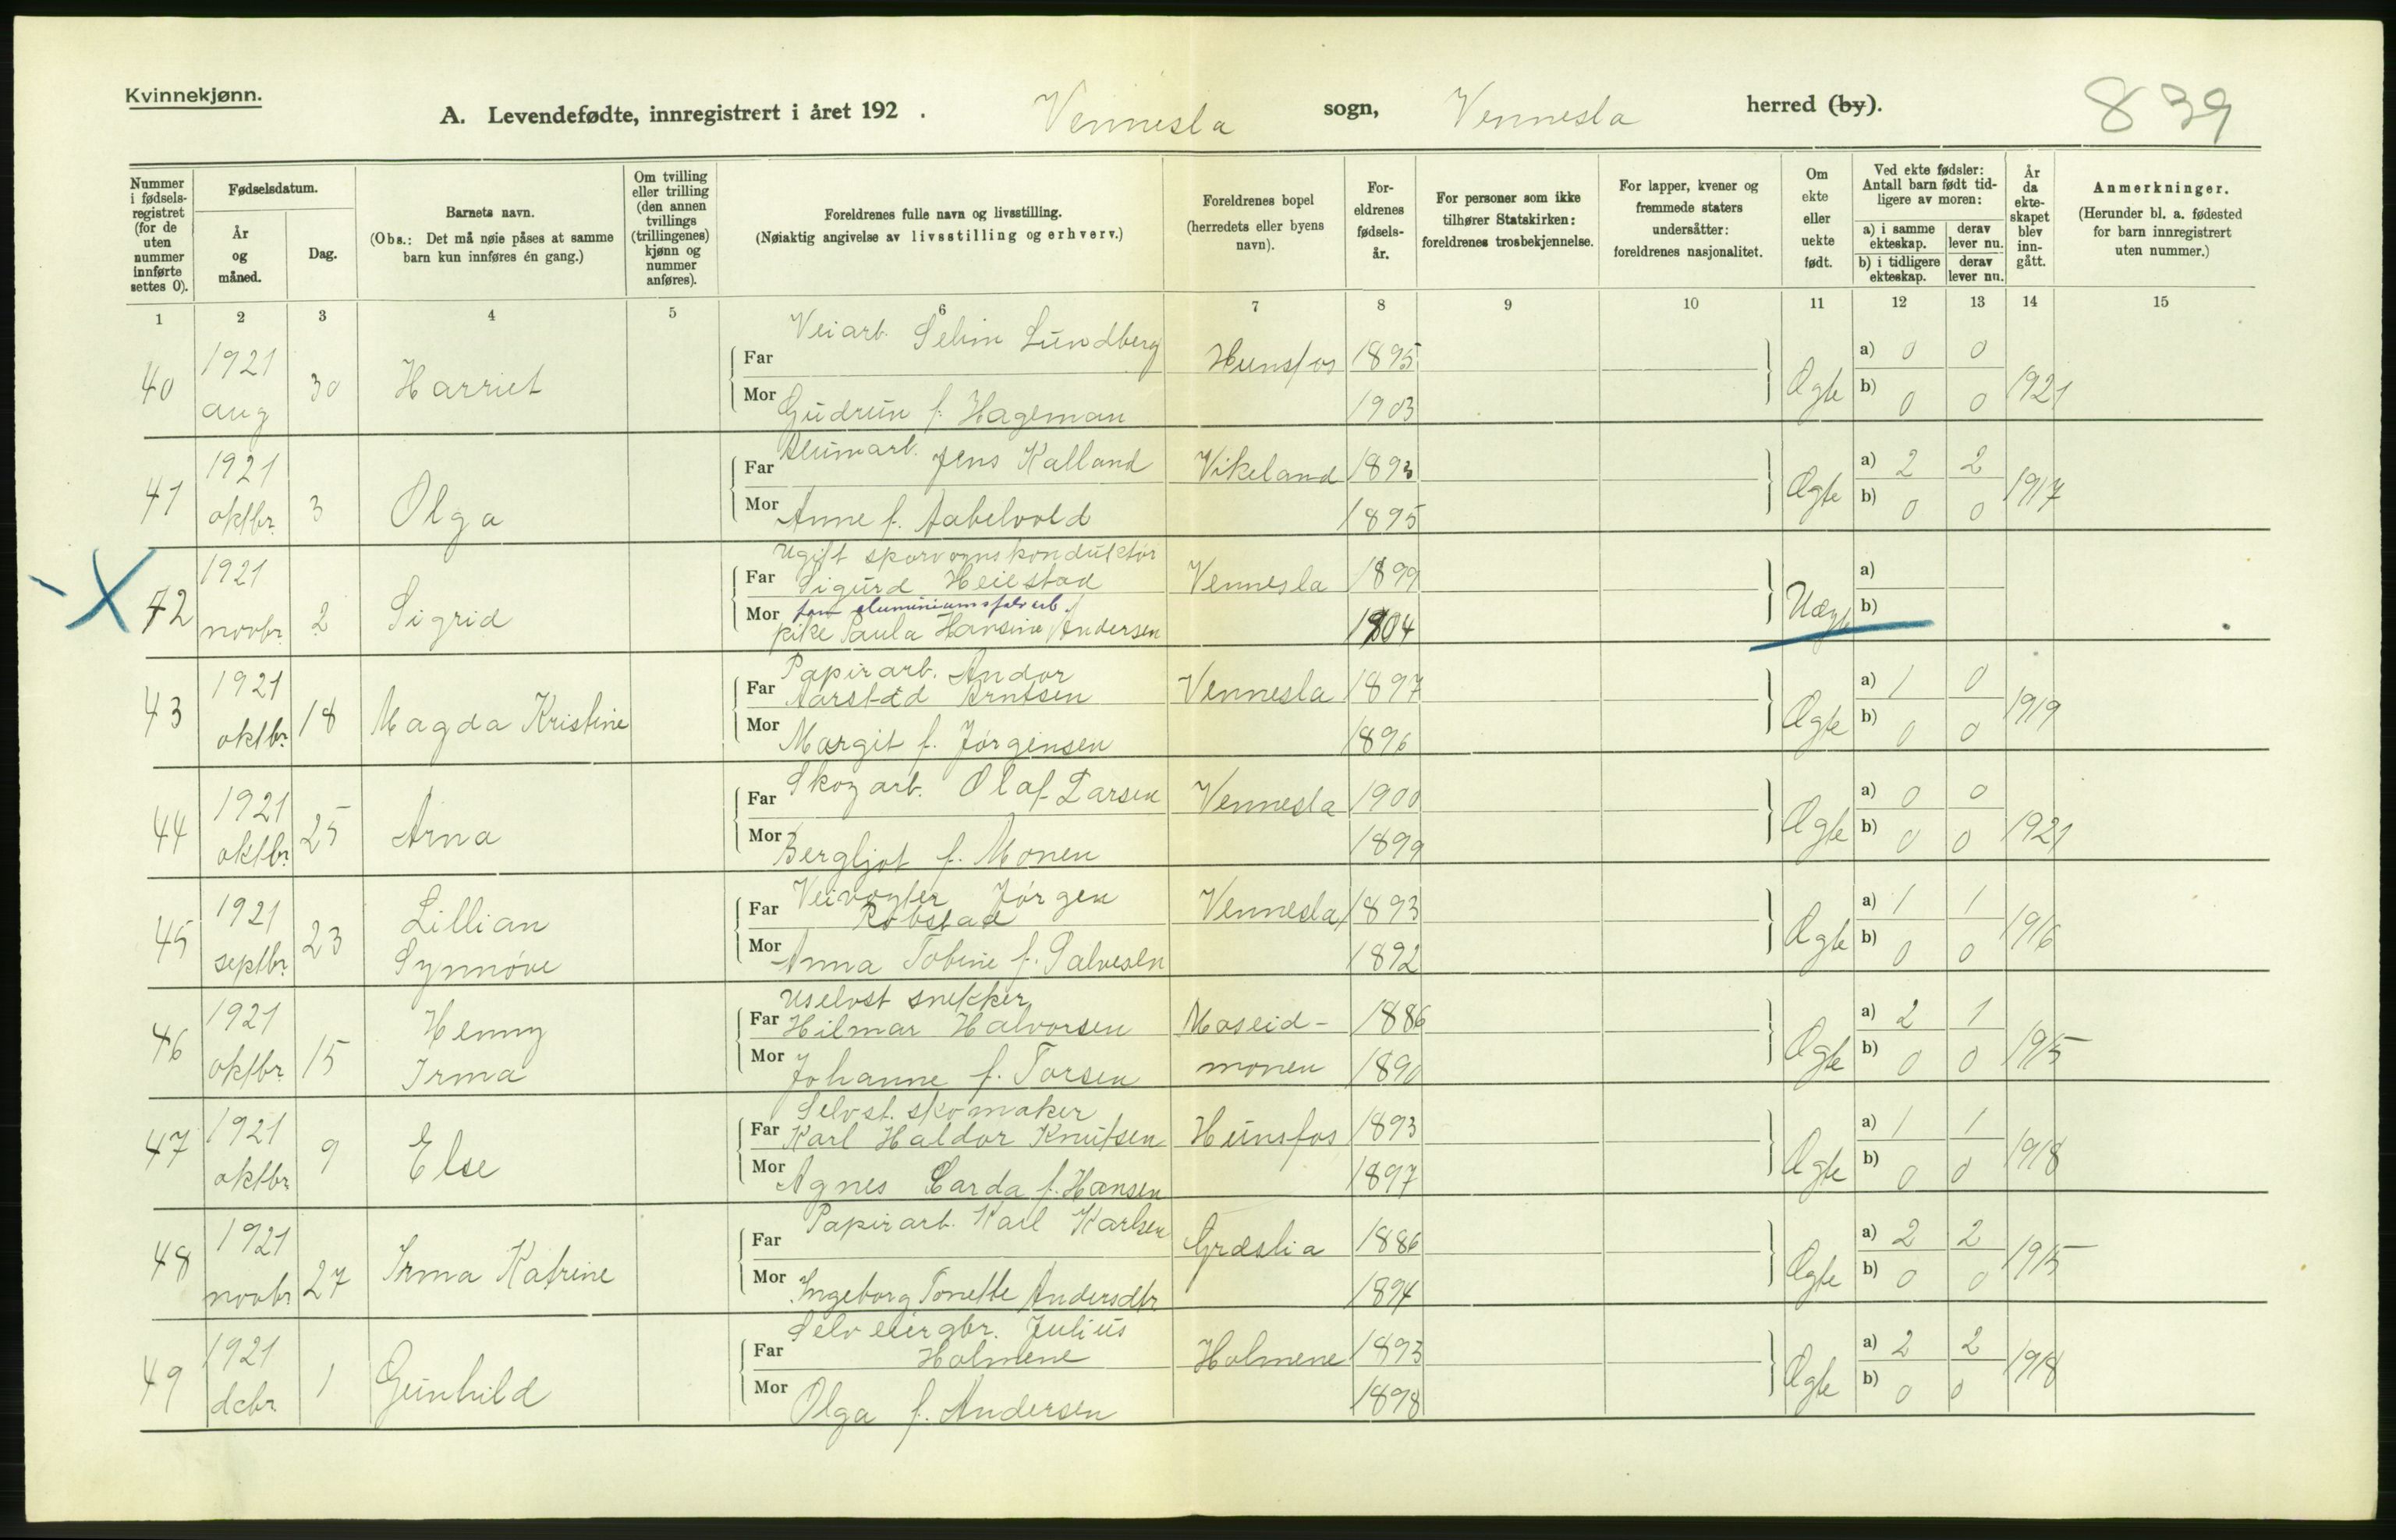 Kvinnekjønn.
A. Levendefødte, innregistrert i året 192 . Vennesla sogn, Vennesla herred (by). 839
Nummer i fødselsregistret (for de uten nummer innførte settes 0).
Fødselsdatum.
År og måned.
Dag.
Barnets navn.
(Obs.: Det må nøie påses at samme barn kun innføres én gang.)
Om tvilling eller trilling (den annen tvillings (trillingenes) kjønn og nummer anføres).
Foreldrenes fulle navn og livsstilling.
(Nøiaktig angivelse av livsstilling og erhverv.)
Foreldrenes bopel (herredets eller byens navn).
Foreldrenes fødselsår.
For personer som ikke tilhører Statskirken: foreldrenes trosbekjennelse.
For lapper, kvener og fremmede staters undersåtter: foreldrenes nasjonalitet.
Om ekte eller uekte født.
Ved ekte fødsler: Antall barn født tidligere av moren:
a) i samme ekteskap. derav lever nu.
b) i tidligere ekteskap. derav lever nu.
År da ekteskapet blev inngått.
Anmerkninger.
(Herunder bl. a. fødested for barn innregistrert uten nummer.)
1 2 3 4 5 6 7 8 9 10 11 12 13 14 15
40 1921 aug 30 Harriet
Far Veiarb. Selim Lundberg Hunsfos 1895
Mor Gudrun f. Hageman 1903
Ægte a) 0 0 b) 0 0 1921
41 1921 oktbr. 3 Olga
Far Alumarb. Jens Kalland Vikeland 1893
Mor Anne f. Aabelvold 1895
Ægte a) 2 2 b) 0 0 1917
X 42 1921 novbr. 2 Sigrid
Far Ugift sporvognskonduktør Sigurd Heiestad Vennesla 1899
Mor aluminiumsfabrarb. pike Paula Hansine Andersen 1904
Uægte a) b)
43 1921 oktbr. 18 Magda Kristine
Far Papirarb. Andor Aarstad Arntsen Vennesla 1897
Mor Margit f. Jørgensen 1896
Ægte a) 1 0 b) 0 0 1919
44 1921 oktbr. 25 Arna
Far Skogarb. Olaf Larsen Vennesla 1900
Mor Bergljot f. Monen 1899
Ægte a) 0 0 b) 0 0 1921
45 1921 septbr. 23 Lillian Synnøve
Far Veivogter Jørgen Robstad Vennesla 1893
Mor Anna Tobine f. Salvesen 1892
Ægte a) 1 1 b) 0 0 1916
46 1921 oktbr. 15 Henny Irma
Far Uselvst snekker Hilmar Halvorsen Moseid- 1886
Mor Johanne f. Torsen monen 1890
Ægte a) 2 1 b) 0 0 1915
47 1921 oktbr. 9 Else
Far Selvst. skomaker Karl Haldor Knutsen Hunsfos 1893
Mor Agnes Carda f. Hansen 1897
Ægte a) 1 1 b) 0 0 1918
48 1921 novbr 27 Irma Katrine
Far Papirarb. Karl Karlsen Græslia 1886
Mor Ingeborg Tonette Andersdtr 1894
Ægte a) 2 2 b) 0 0 1915
49 1921 dcbr. 1 Gunhild
Far Selveiergbr. Julius Holmene Holmene 1893
Mor Olga f. Andersen 1898
Ægte a) 2 2 b) 0 0 1918